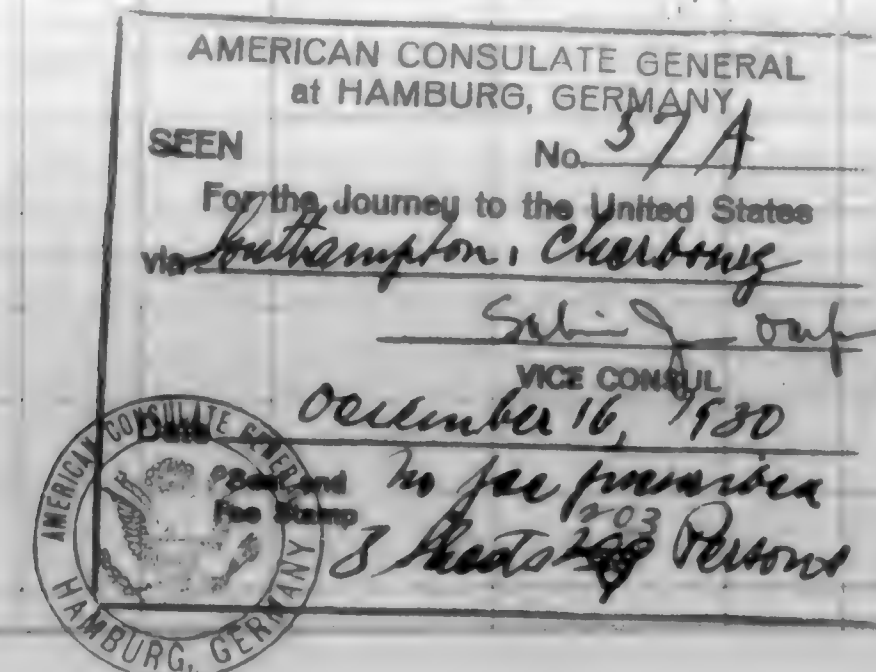 AMERICAN CONSULATE GENERAL
at HAMBURG, GERMANY
SEEN No. 57 A
For the Journey to the United States
via Southampton, Cherbourg
VICE CONSUL
Date December 16, 1930
Seal and no fee prescribed
Fee Stamp
8 Sheets 203 Persons
AMERICAN CONSULATE GENERAL
HAMBURG, GERMANY